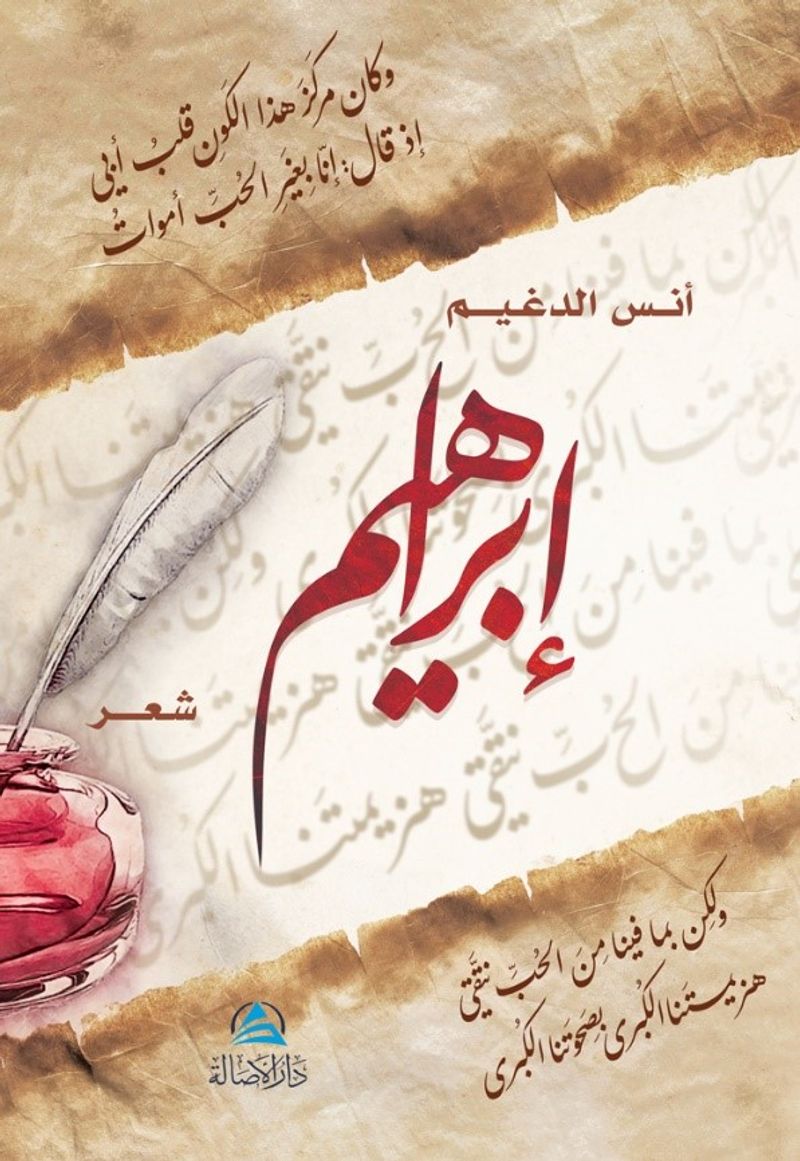 وكان مركزَ هذا الكونِ قلبُ أبي
إذ قال: إنّا بغيرِ الحُبِّ أمواتُ
أنس الدغيم
إبراهيم
شعر
ولكِن بما فينا مِنَ الحُبِّ نتّقي
هزيمتَنا الكُبرى بصَحوتنا الكُبرى
دار الأصالة